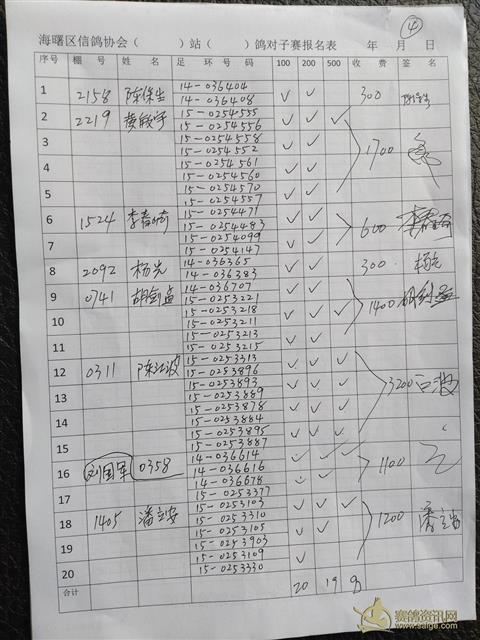 ④
海曙区信鸽协会( )站( )鸽对子赛报名表 年 月 日
序号 棚 号 姓 名 足 环 号 码 100 200 500 缴 费 签 名
1 2158 陈保生 14-036404 ✓ ✓ 300
14-036408
2 2219 15-0254555 ✓ ✓ ✓ 1700
15-0254556
3 15-0254558 ✓ ✓
15-0254552
4 15-0254561 ✓ ✓
15-0254560
5 15-0254570 ✓ ✓
15-0254557
6 1524 15-0254471 ✓ ✓ 600
15-0254483
7 15-0254099 ✓ ✓
15-0254147
8 2092 杨先 14-036365 ✓ ✓ 300
14-036383
9 0741 胡剑益 14-036707 ✓ ✓ 1400 胡剑益
15-0253221
10 15-0253218 ✓ ✓ ✓
15-0253211
11 15-0253213 ✓ ✓
15-0253215
12 0311 陈江波 15-0253313 ✓ ✓ ✓ 3200
15-0253896
13 15-0253893 ✓ ✓ ✓
15-0253889
14 15-0253878 ✓ ✓ ✓
15-0253884
15 15-0253895 ✓ ✓ ✓
15-0253887
16 刘国军 0358 14-036614 ✓ ✓ ✓ 1100
14-036616
17 14-036678 ✓ ✓
15-0253377
18 1405 潘立安 15-0253103 ✓ ✓ ✓ 1200 潘立安
15-0253310
19 15-0253105 ✓ ✓
15-0253903
20 15-0253109 ✓
15-0253330
合计 20 19 8
赛鸽资讯网
www.saige.com